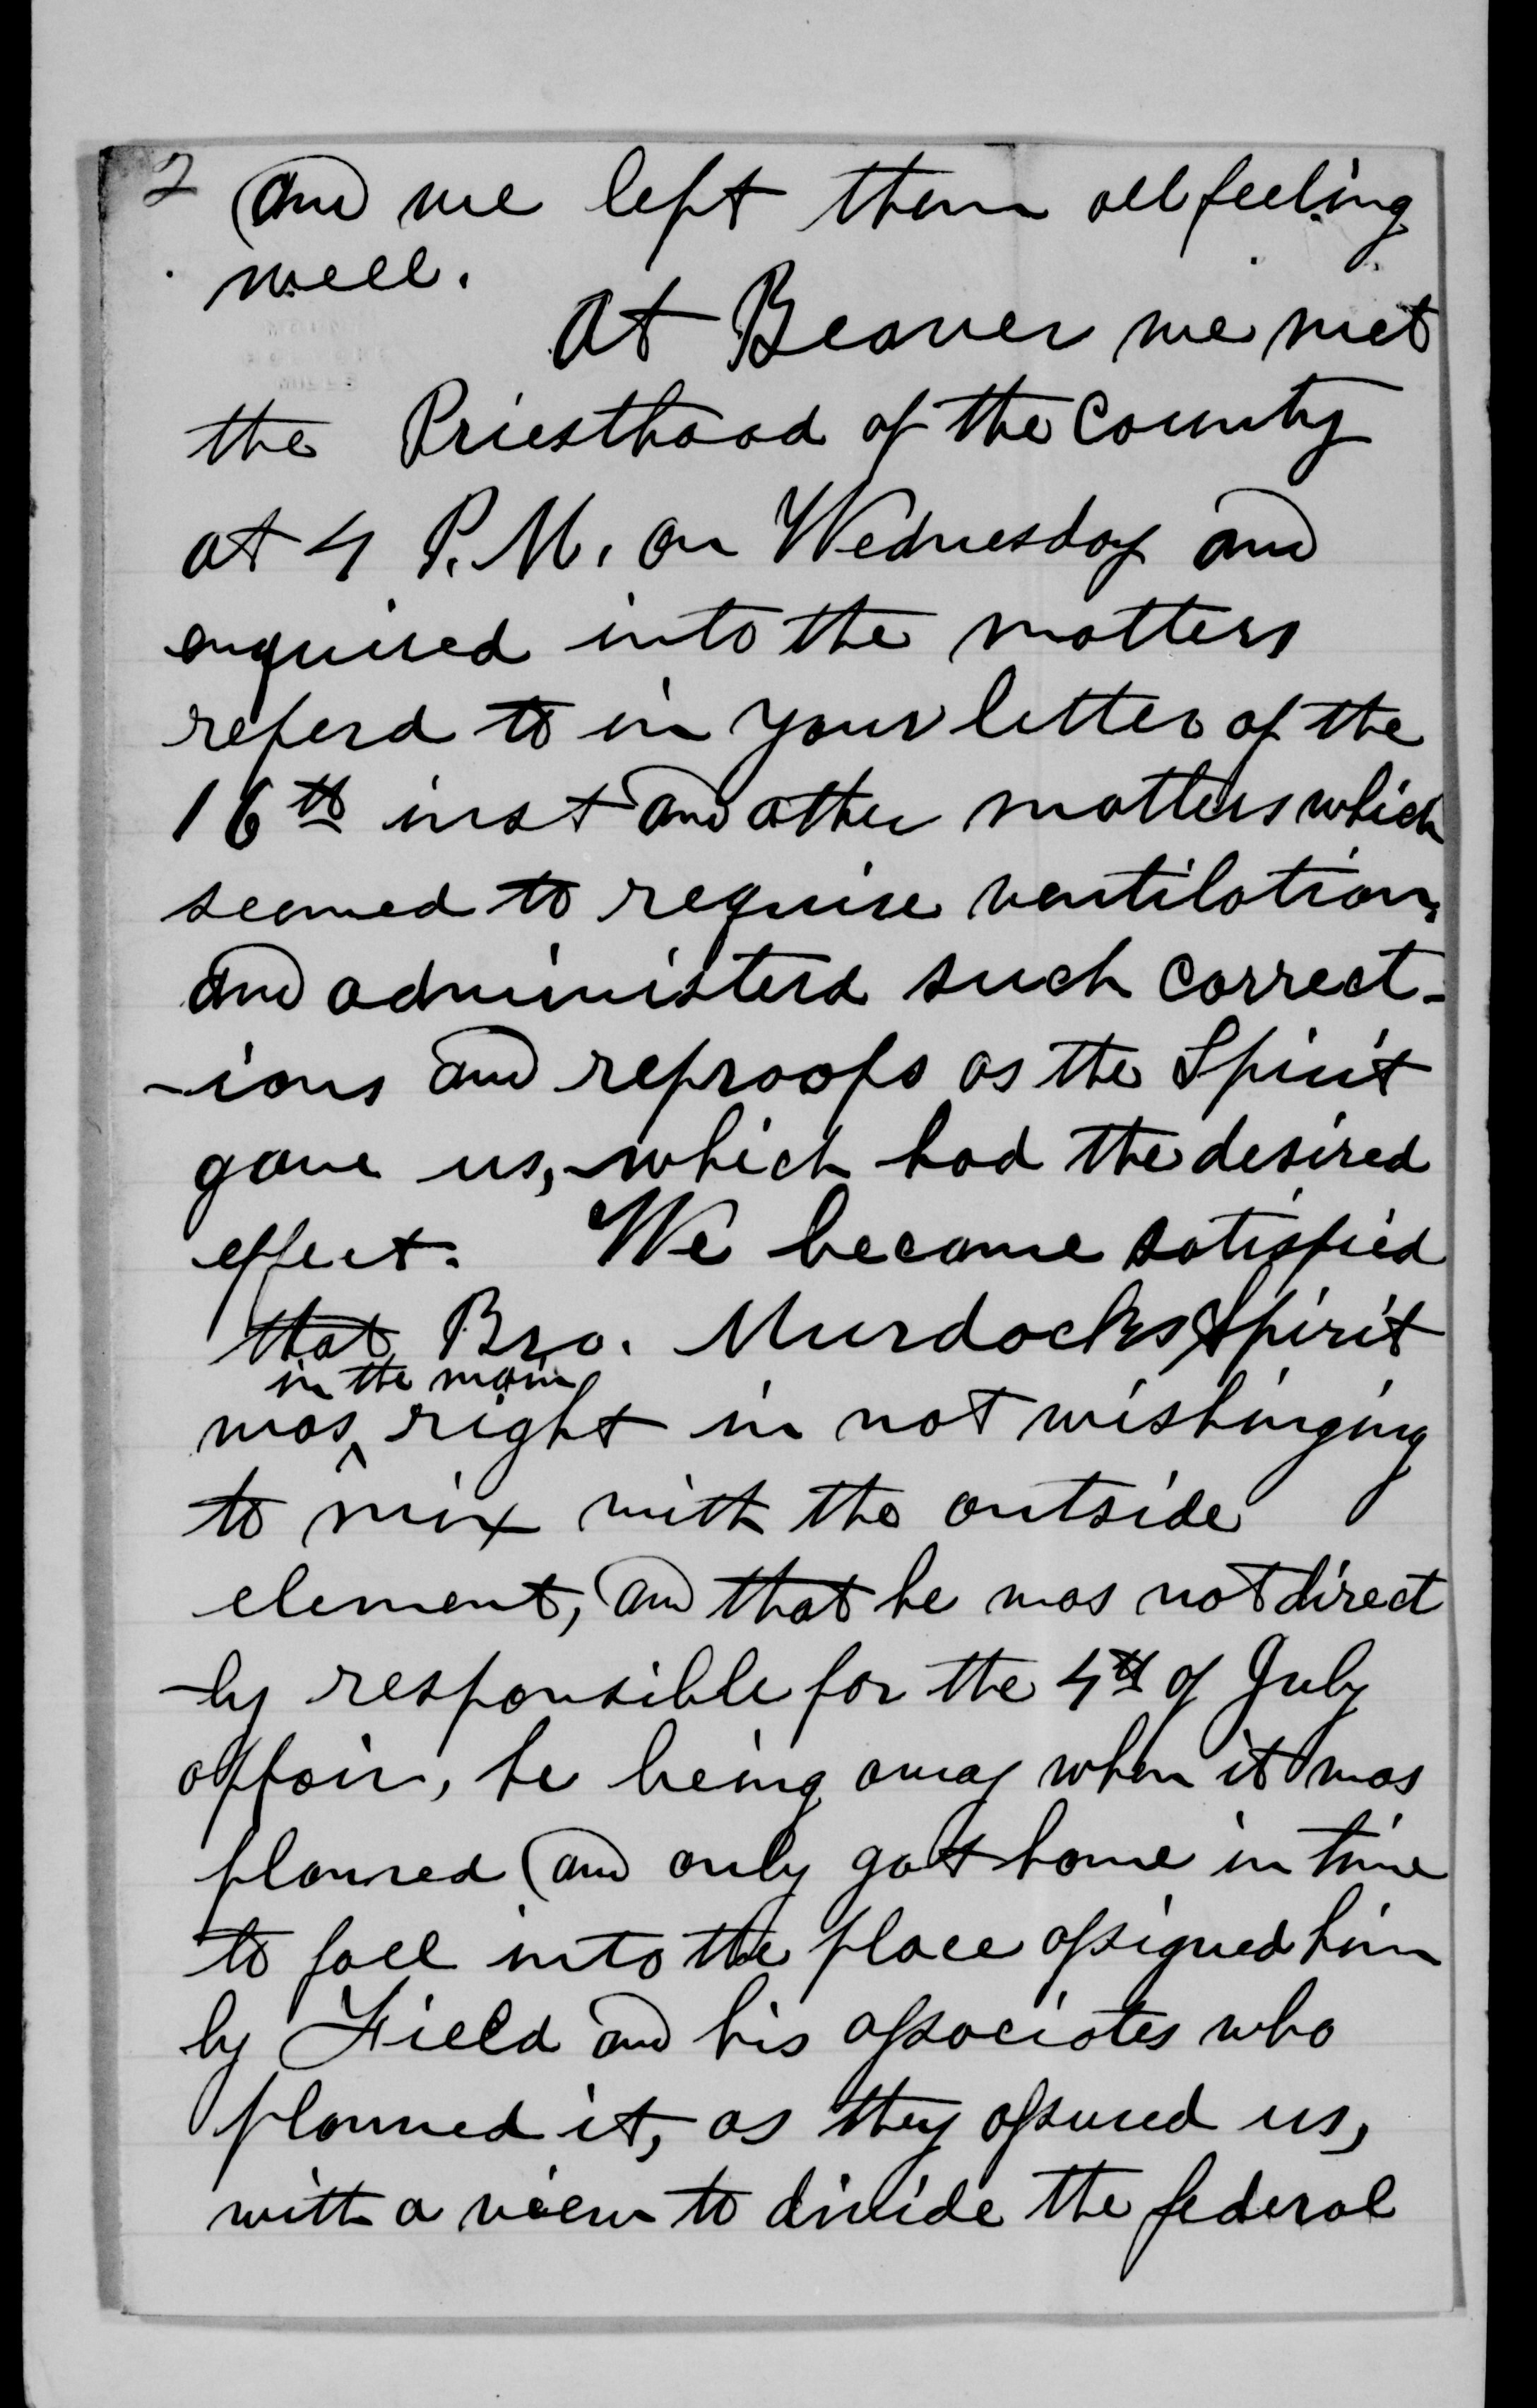 2 and we left them all feeling
well.
At Beaver we met
the Priesthood of the County
at 4 P.M. on Wednesday and
enquired into the matters
referd to in your letter of the
16th inst and other matters which
seemed to require ventilation,
and administerd such correct-
-ions and reproofs as the Spirit
gave us, which had the desired
effect. We became satisfied
that Bro. Murdocks Spirit
in the main
was ^ right in not wishinging
to mix with the outside
element, and that he was not direct
-ly responsible for the 4th of July
affair, he being away when it was
planned and only got home in time
to fall into the place assigned him
by Field and his associates who
planned it, as they assured us,
with a view to divide the federal